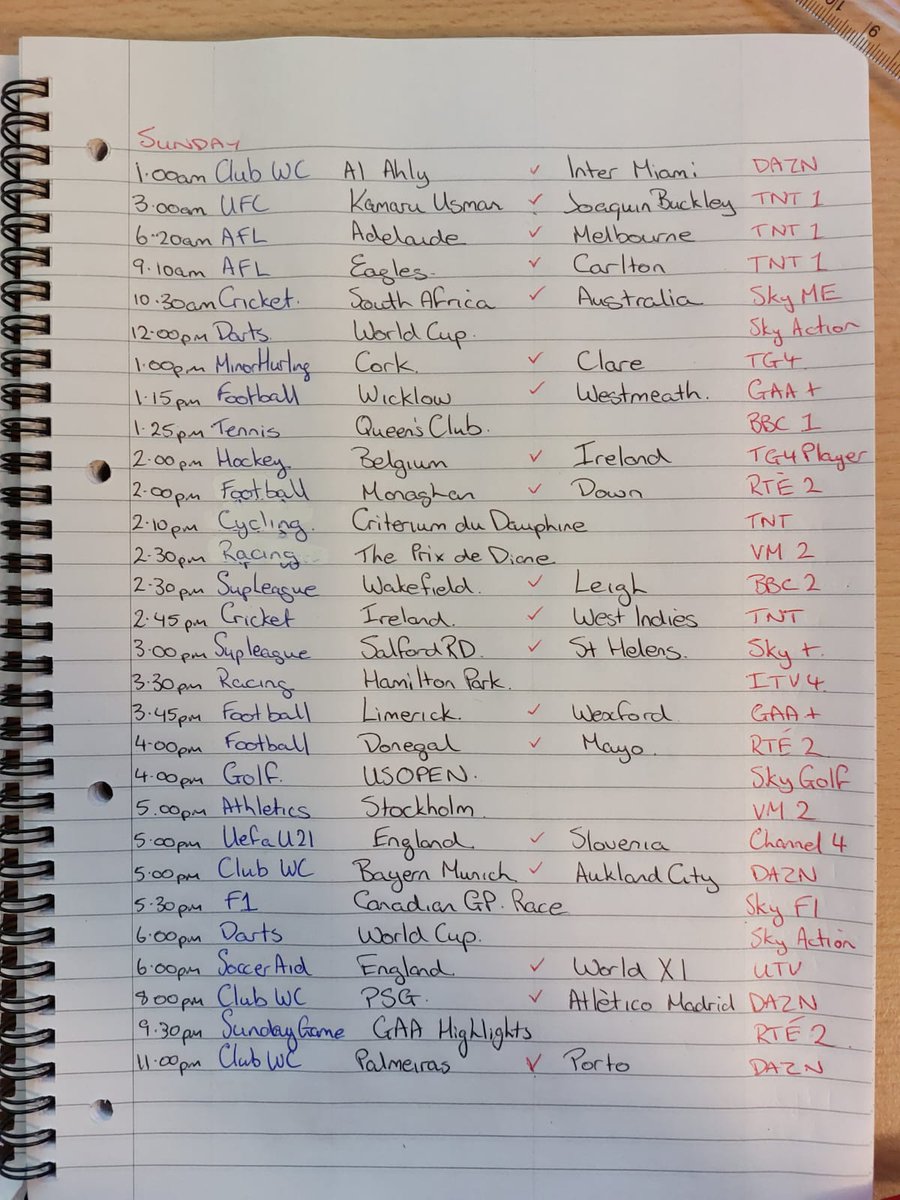 SUNDAY
1.00am Club WC Al Ahly v Inter Miami DAZN
3.00am UFC Kamaru Usman v Joaquin Buckley TNT 1
6.20am AFL Adelaide v Melbourne TNT 1
9.10am AFL Eagles. v Carlton TNT 1
10.30am Cricket. South Africa v Australia Sky ME
12.00pm Darts World Cup. Sky Action
1.00pm Minor Hurling Cork. v Clare TG4.
1.15pm Football Wicklow v Westmeath. GAA +
1.25pm Tennis Queen's Club. BBC 1
2.00pm Hockey Belgium v Ireland TG4 Player
2.00pm Football Monaghan v Down RTÉ 2
2.10pm Cycling. Criterium du Dauphine TNT
2.30pm Racing The Prix de Diane VM 2
2.30pm Supleague Wakefield. v Leigh BBC 2
2.45pm Cricket Ireland. v West Indies TNT
3.00pm Supleague Salford RD. v St Helens. Sky +.
3.30pm Racing Hamilton Park. ITV4.
3.45pm Football Limerick. v Wexford GAA +
4.00pm Football Donegal v Mayo. RTÉ 2
4.00pm Golf. US OPEN. Sky Golf
5.00pm Athletics Stockholm VM 2
5.00pm Uefa U21 England. v Slovenia Channel 4
5.00pm Club WC Bayern Munich v Aukland City DAZN
5.30pm F1 Canadian G.P. Race Sky F1
6.00pm Darts World Cup. Sky Action
6.00pm Soccer Aid England. v World XI UTV
8.00pm Club WC PSG. v Atlètico Madrid DAZN
9.30pm Sunday Game GAA Highlights RTÉ 2
11.00pm Club WC Palmeiras v Porto DAZN